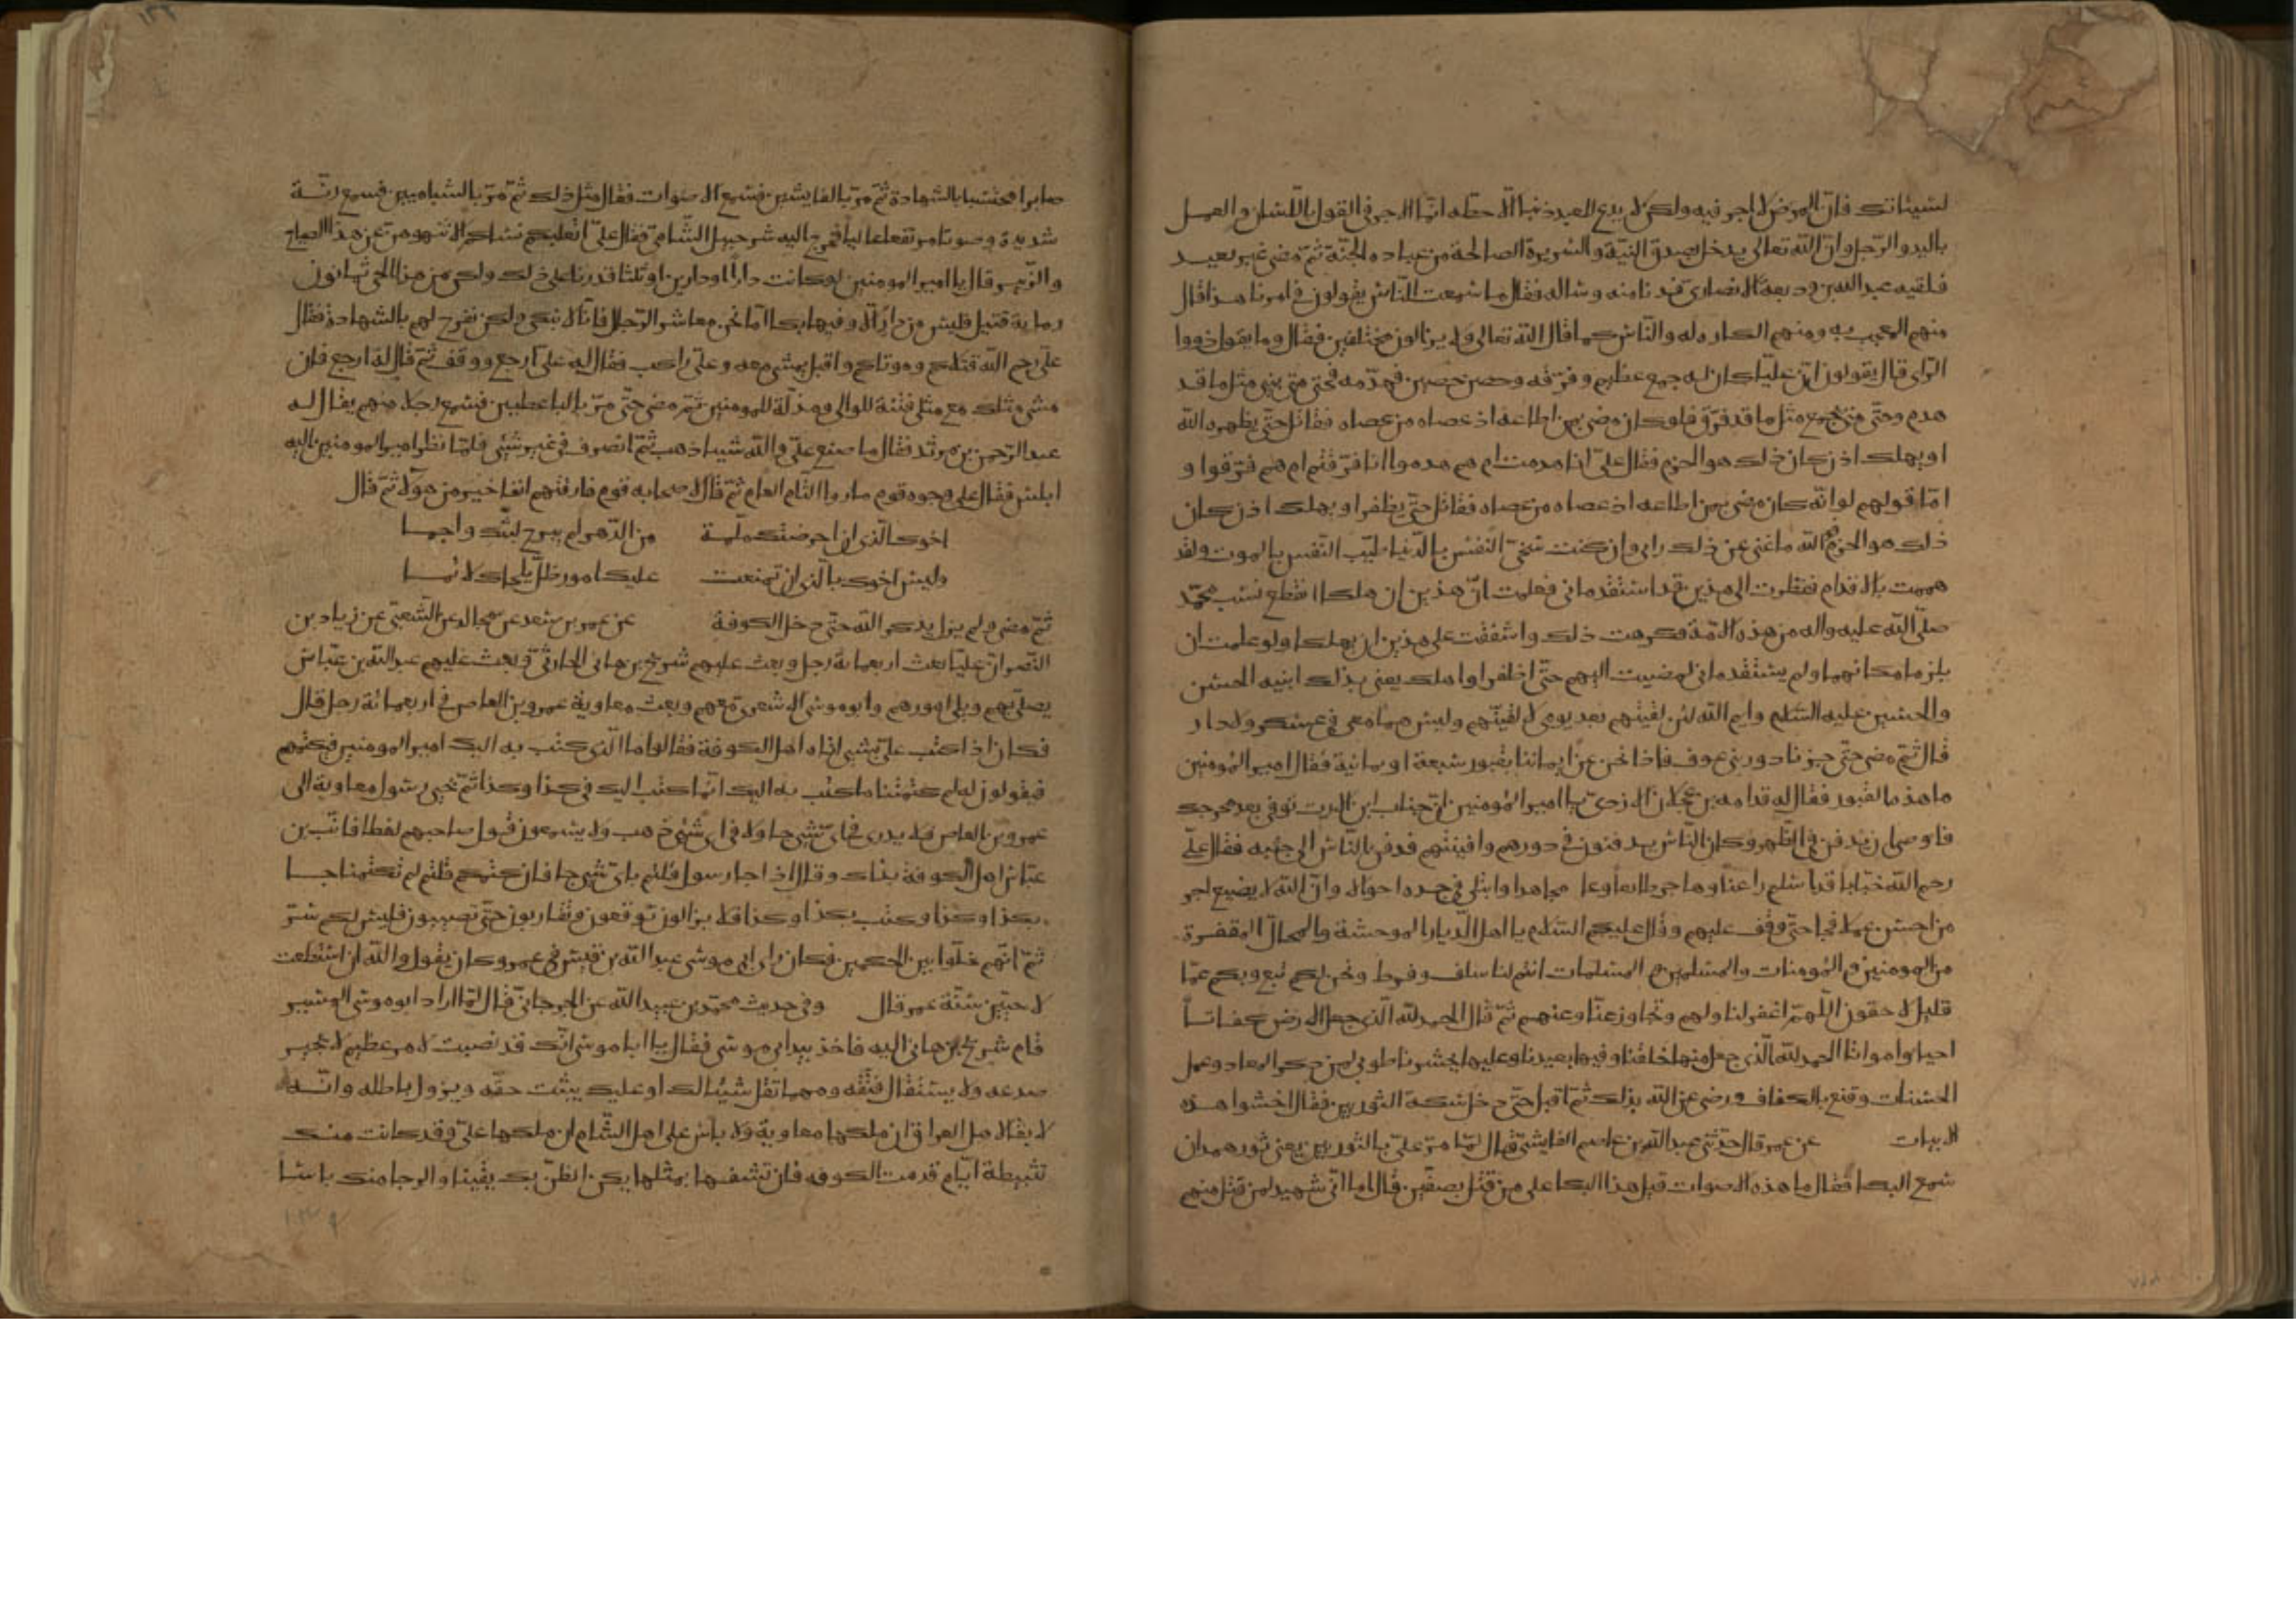 لسيئاتك فان المرض لا اجر فيه ولكن لا يدع للعبد ذنبا الا حطه انما الاجر في القول باللسان والعمل
باليد والرجل وان الله تعالى يدخل بصدق النية والسريرة الصالحة من عباده الجنة ثم مضى غير بعيد
فلقيه عبد الله بن وديعة الانصارى فدنا منه وساله فقال ما سمعت الناس يقولون في امرنا هذا قال
منهم المعجب به ومنهم الكاره له والناس كما قال الله تعالى ولا يزالون مختلفين فقال وما يقول ذووا
الراى قال يقولون ان عليا كان له جمع عظيم وفرقه وحصن حصين فهدمه فحتى متى يبنى مثل ما قد
هدم وحتى متى يجمع مثل ما قد فرق فلو كان مضى بمن اطاعه اذ عصاه من عصاه فقاتل حتى يظهره الله
او يهلك اذن كان ذلك هو الحزم فقال على انا هدمت ام هم هدموا انا فرقتم ام هم فرقوا و
اما قولهم لو انه كان مضى بمن اطاعه اذ عصاه من عصاه فقاتل حتى يظفر او يهلك اذن كان
ذلك هو الحزم فوالله ما غنى عن ذلك رايى وان كنت سخى النفس بالدنيا طيب النفس بالموت ولقد
هممت بالاقدام فنظرت الى هذين قد استقدمانى فعلمت ان هذين ان هلكا انقطع نسب محمد
صلى الله عليه واله من هذه الامة فكرهت ذلك واشفقت على هذين ان يهلكا ولو علمت ان
يلزما مكانهما ولم يستقدمانى لمضيت اليهم حتى اظفر او اهلك يعنى بذلك ابنيه الحسن
والحسين عليه السلم وايم الله لئن لقيتهم بعد يومى لا لقيتهم وليس هما معى في عسكر ولا دار
قال ثم مضى حتى جزنا دور بنى عوف فاذا نحن عن ايماننا بقبور سبعة او ثمانية فقال امير المؤمنين
ما هذه القبور فقال له قدامه بن عجلان الازدى يا امير المؤمنين ان خباب ابن الارت توفى بعد مخرجك
فاوصى ان يدفن في الظهر وكان الناس يدفنون في دورهم وافنيتهم فدفن بالناس الى جنبه فقال على
رحم الله خبابا قد اسلم راغبا وهاجر طائعا وعاش مجاهدا وابتلى في جسده احوالا وان الله لا يضيع اجر
من احسن عملا فجا حتى وقف عليهم وقال عليكم السلام يا اهل الديار الموحشة والمحال المقفرة
من المومنين والمؤمنات والمسلمين والمسلمات انتم لنا سلف وفرط ونحن لكم تبع وبكم عما
قليل لاحقون اللهم اغفر لنا ولهم وتجاوز عنا وعنهم ثم قال الحمد لله الذى جعل الارض كفاتا
احيا وامواتا الحمد لله الذى جعل منها خلقنا وفيها يعيدنا وعليها يحشرنا طوبى لمن ذكر المعاد وعمل
الحسنات وقنع بالكفاف ورضى عن الله بذلك ثم اقبل حتى دخل سكة الثوريين فقال اخشوا هذه
الابيات عن عمر قال حدثنى عبد الله بن عاصم الفايشى قال لما مر على بالثوريين يعنى ثور همدان
سمع البكا فقال ما هذه الاصوات قيل هذا البكا على من قتل بصفين قال اما انى شهيد لمن قتل منهم
صابرا محتسبا بالشهادة ثم مر بالفايشيين فسمع الاصوات فقال مثل ذلك ثم مر بالشباميين فسمع رنة
شديدة وصوتا مرتفعا عاليا فخرج اليه شرحبيل الشامى فقال على اتغلبكم نساكم الا تنهوهن عن هذا الصياح
والرنين قال يا امير المومنين لو كانت دارا او دارين او ثلثا قدرنا على ذلك ولكن من هذا الحى ثمانون
ومايه قتيل فليس من دار الا وفيها بكا اما نحن معاشر الرجل فانا لا نبكى ولكن نفرح لهم بالشهادة فقال
على رحم الله قتلاكم وموتاكم واقبل يمشى معه وعلى راكب فقال له على ارجع ووقف ثم قال له ارجع فان
مشى مثلك مع مثلى فتنة للوالى ومذلة للمومنين ثم مضى حتى مر بالناعطيين فسمع رجلا منهم يقال له
عبد الرحمن بن مرثد فقال ما صنع على والله شيا ذهب ثم انصرف في غير شئى فلما نظر امير المومنين اليه
ابلس فقال على وجوه قوم ما راوا الشام العام ثم قال لاصحابه قوم فارقتهم انفا خير من هولا ثم قال
اخوك الذى ان اجرضتك ملمة من الدهر لم يبرح لبثك واجما
وليس اخوك بالذى ان تمنعت عليك امور ظل يلحاك لائما
ثم مضى ولم يزل يذكر الله حتى دخل الكوفة عن عمر بن سعد عن مجالد عن الشعبى عن زياد بن
النضر ان عليا بعث اربعماية رجل وبعث عليهم شريح بن هانى الحارثى وبعث عليهم عبد الله بن عباس
يصلى بهم ويلى امورهم وابو موسى الاشعرى معهم وبعث معاوية عمرو بن العاص في اربعمائة رجل قال
فكان اذا كتب على بشى اتاه اهل الكوفة فقالوا ما الذى كتب به اليك امير المومنين فيكتمهم
فيقولون له لم كتمتنا ما كتب به اليك انما كتب اليك في كذا وكذا ثم يجى رسول معاوية الى
عمرو بن العاص فلا يدرى في اى شى جا ولا في اى شئى ذهب ولا يسمعون قبول صاحبهم لغطا فانب بن
عباس اهل الكوفة بذاك وقال اذا جا رسول قلتم باى شى جا فان كتمكم قلتم لم تكتمنا جا
بكذا وكذا وكتب بكذا وكذا فلا يزالون توقعون وتقاربون حتى تصيبون فليس لكم سر
ثم انهم خلوا بين الحكمين فكان راى ابى موسى عبد الله بن قيس في عمر وكان يقول والله ان استطعت
لاحيين سنة عمر قال وفى حديث محمد بن عبيد الله عن الجرجانى قال لما اراد ابو موسى المسير
قام شريح بن هانى اليه فاخذ بيد ابى موسى فقال يا ابا موسى انك قد نصبت لامر عظيم لا يجبر
صدعه ولا يستقال فتقه ومهما تقل شيئا لك او عليك يثبت حقه ويزول باطله وانه
لا بقا لاهل العراق ان ملكها معاوية ولا باس على اهل الشام ان ملكها على وقد كانت منك
تثبيطة ايام قدمت الكوفه فان تشفعها بمثلها يكن الظن بك يقينا والرجا منك ياسا